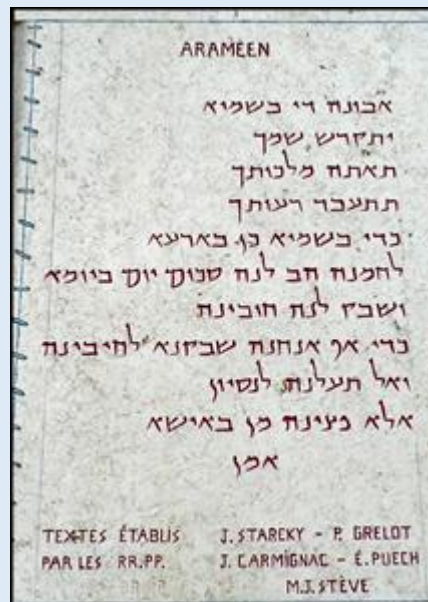 ARAMEEN
אבונה די בשמיא
יתקדש שמך
תאתה מלכותך
תתעבד רעותך
כדי בשמיא כן בארעא
לחמנה הב לנה סכום יום ביומא
ושבק לנה חובינה
כדי אף אנחנה שבקנא לחיבינה
ואל תעלנה לנסיון
אלא פצינה מן באישא
אמן
TEXTES ÉTABLIS J. STARCKY - P. GRELOT
PAR LES RR.PP. J. CARMIGNAC - É. PUECH
M.J. STÈVE